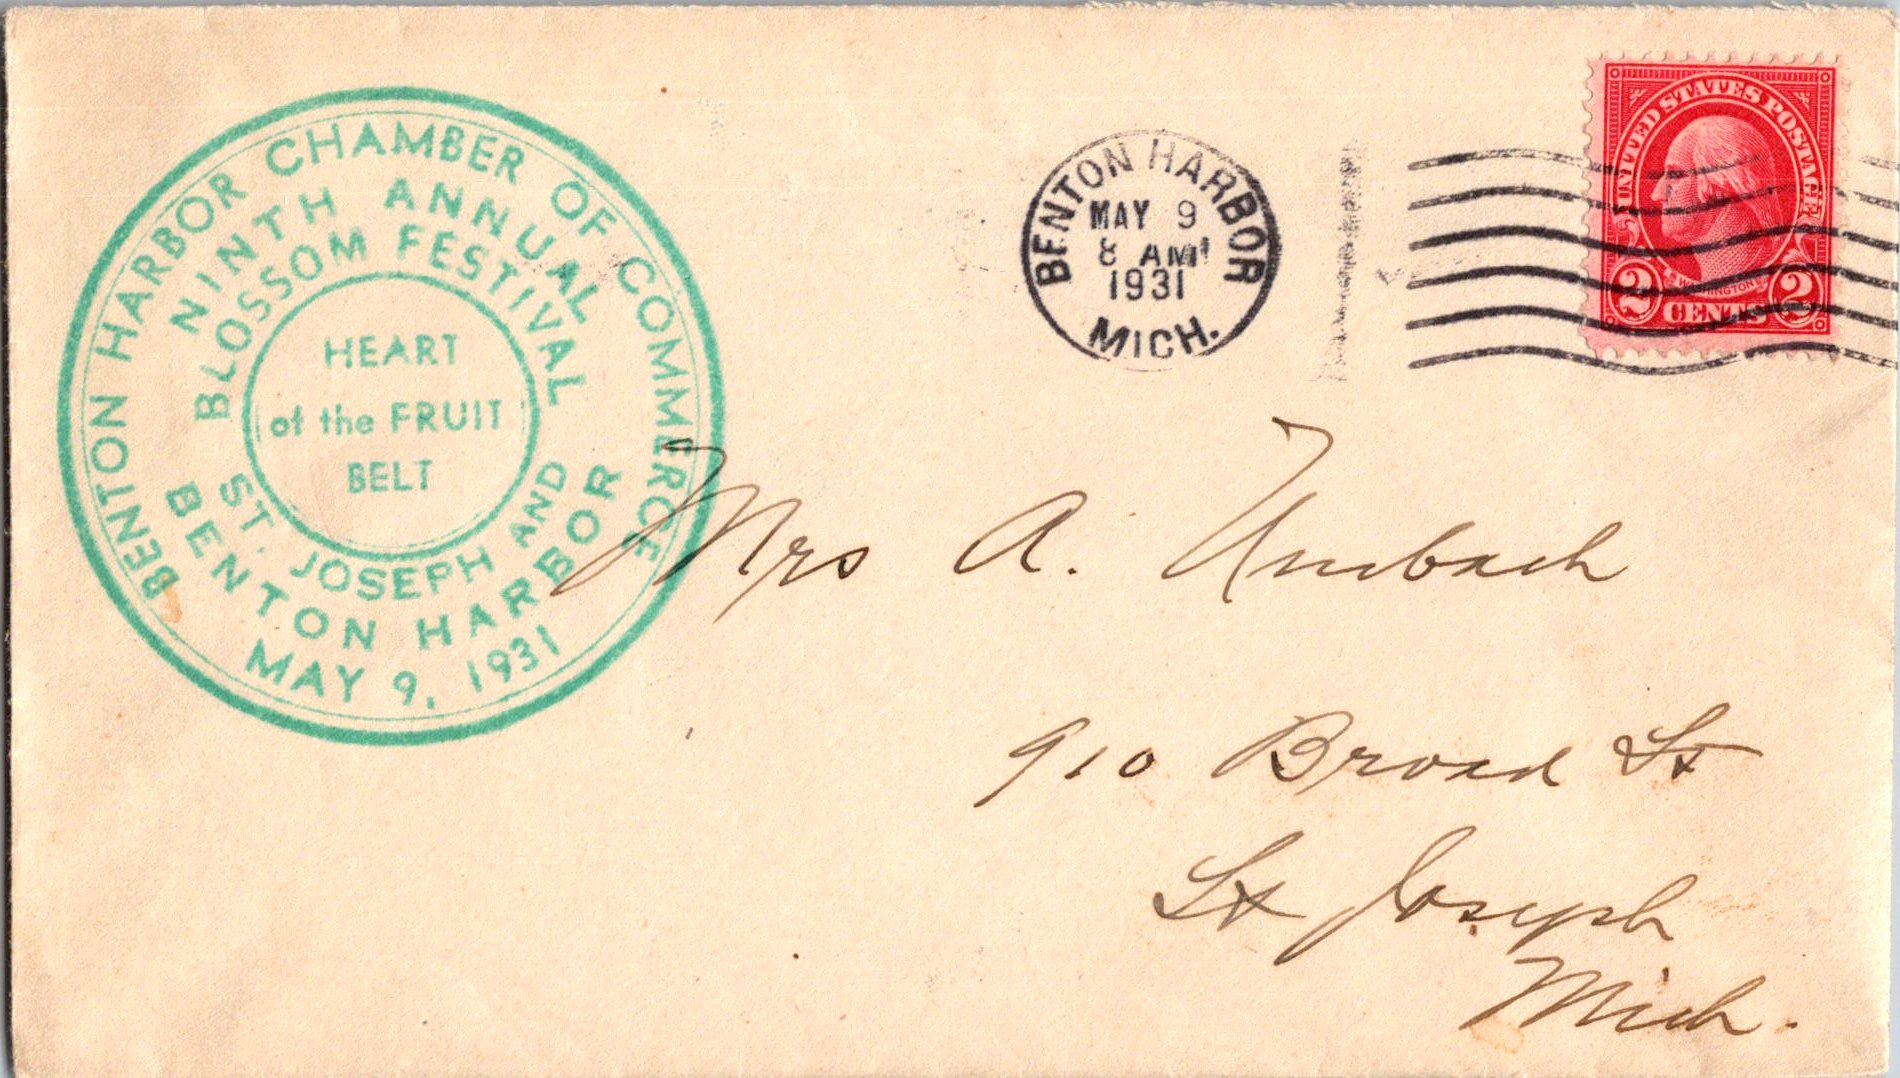 BENTON HARBOR CHAMBER OF COMMERCE
NINTH ANNUAL
BLOSSOM FESTIVAL
HEART
of the FRUIT
BELT
ST. JOSEPH AND
BENTON HARBOR
MAY 9, 1931
BENTON HARBOR
MAY 9
8 AM
1931
MICH.
UNITED STATES POSTAGE
WASHINGTON
2 CENTS 2
Mrs A. Umbach
910 Broad St
St Joseph
Mich.